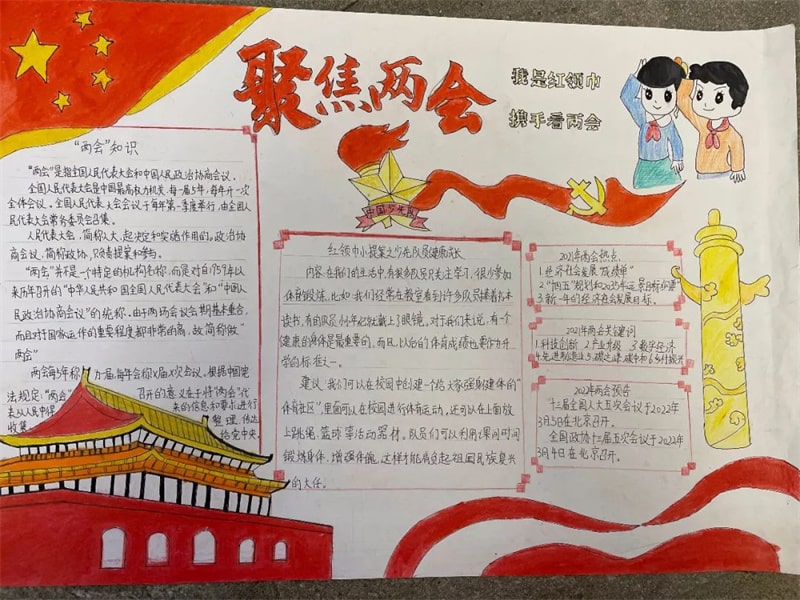 聚焦两会
我是红领巾
携手看两会
“两会”知识
“两会”是指全国人民代表大会和中国人民政治协商会议。
全国人民代表大会是中国最高权力机关,每一届5年,每年开一次
全体会议。全国人民代表大会会议于每年第一季度举行,由全国人
民代表大会常务委员会召集。
人民代表大会,简称人大,起决定和实施作用的。政治协
商会议,简称政协,只负责提案和参与。
“两会”并不是一个特定的机构名称,而是对自1959年以
来历年召开的“中华人民共和国全国人民代表大会”和“中国人
民政治协商会议”的统称,由于两场会议会期基本重合,
而且对于国家运作的重要程度都非常的高,故简称做“
两会”
两会每5年称为一届,每年会称X届X次会议。根据中国宪
法规定:“两会” 召开的意义在于将“两会”代
表从人民中得 来的信息和要求进行
收集 整理,传达
给党中央。
中国少年先
红领巾小提案之少先队员健康成长
内容:在我们的生活中,有很多队员只关注学习,很少参加
体育锻炼,比如我们经常在教室看到许多队员捧着书本
读书,有的队员小小年纪就戴上了眼镜,对于我们来说,有一个
健康的身体是最重要的,而且,以后的体育成绩也要作为升
学的标准之一。
建议:我们可以在校园中创建一个给大家强身健体的“
体育社区”,里面可以在校园进行体育运动,还可以在上面放
上跳绳、篮球等活动器材。队员们可以利用课间时间
锻炼身体,增强体魄,这样才能肩负起祖国民族复兴
的大任。
2021年两会热点:
1.经济社会发展“成绩单”
2.“十四五”规划和2035年远景目标纲要
3.新一年的经济社会发展目标。
2021年两会关键词
1.科技创新 2.产业升级 3.数字经济
4.先进制造业 5.碳达峰、碳中和 6.乡村振兴
2022年两会预告
十三届全国人大五次会议于2022年
3月5日在北京召开。
全国政协十三届五次会议于2022年
3月4日在北京召开。